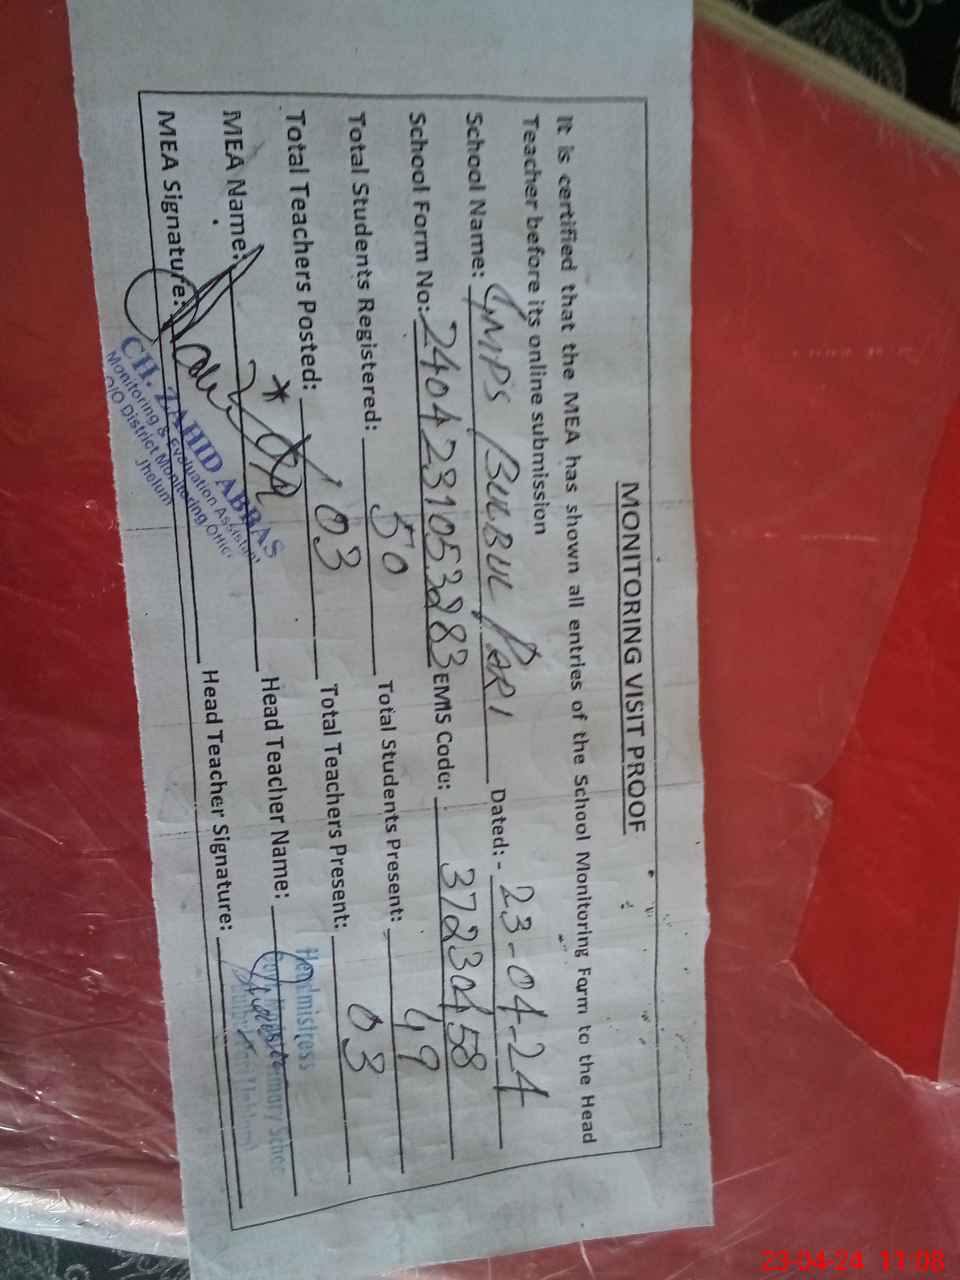 MONITORING VISIT PROOF
It is certified that the MEA has shown all entries of the School Monitoring Form to the Head
Teacher before its online submission
School Name: GMPS BULBUL PARI Dated: - 23-04-24
School Form No: 2404231053283 EMIS Code: 37230458
Total Students Registered: 50 Total Students Present: 49
Total Teachers Posted: 03 Total Teachers Present: 03
MEA Name: Head Teacher Name:
MEA Signature: Head Teacher Signature:
CH. ZAHID ABBAS
Monitoring & Evaluation Assistant
O/O District Monitoring Office
Jhelum
Headmistress
23-04-24 11:08